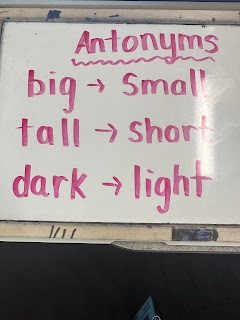 Antonyms
big → small
tall → short
dark → light